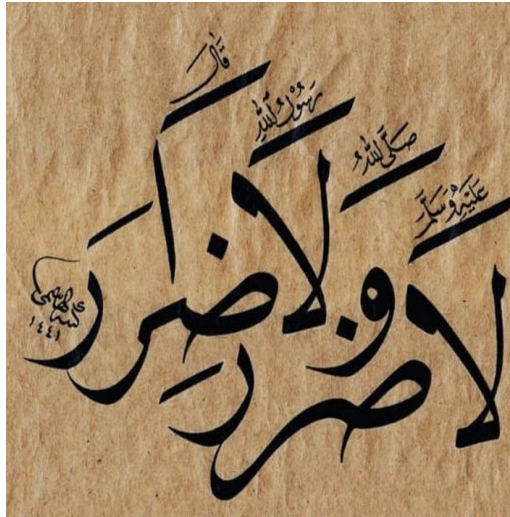 قَالَ رَسُوْلُ اللهِ صَلَّى اللهُ عَلَيْهِ وَسَلَّمَ
لَا ضَرَرَ وَلَا ضِرَارَ
١٤٤١